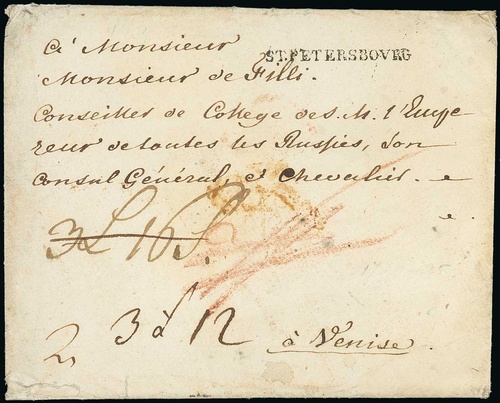 à Monsieur
ST.PETERSBOVRG
Monsieur de Filli.
Conseiller de College de S. M. l'Empe-
reur de toutes les Russies, son
Consul Général, et Chevalier. e
e.
3L 16S
3 d 12
2
à Venise.